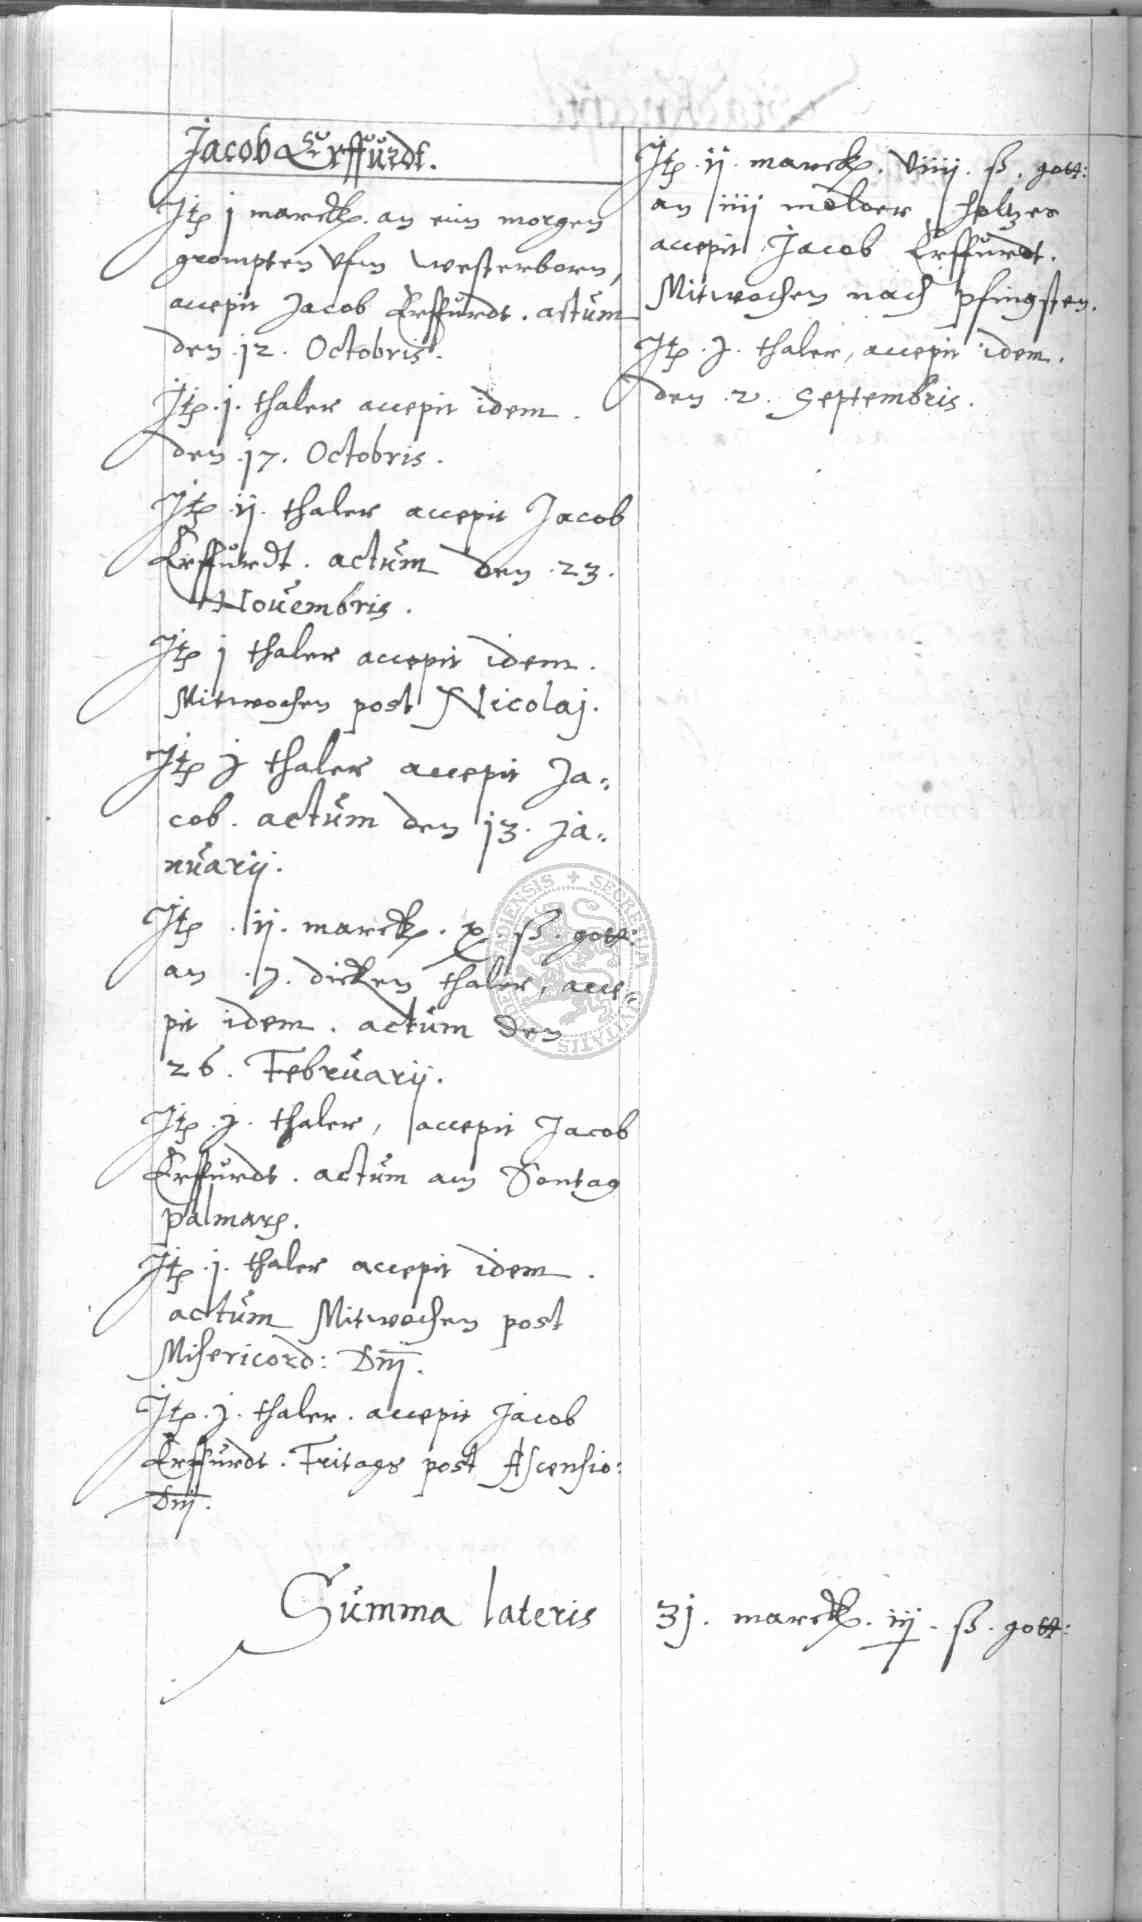 Jacob Erffurdt.
Itp j marck. an ein morgen
grompten vfm westerborn,
accepit Jacob Erffurdt. actum
den .12. Octobris.
Itp .j. thaler accepit idem.
den .17. Octobris.
Itp .ij. thaler accepit Jacob
Erffurdt. actum den .23.
Novembris.
Itp j thaler accepit idem.
Mitwochen post Nicolaj.
Itp j thaler accepit Ja-
cob. actum den 13. Ja-
nuarij.
Itp .ij. marck. x. ß. gott:
an .j. dicken thaler, acce-
pit idem. actum den
26. Februarij.
Itp .j. thaler, accepit Jacob
Erffurdt. actum am Sontag
palmarum.
Itp .j. thaler accepit idem.
actum Mitwochen post
Misericord: Dnj.
Itp .j. thaler. accepit Jacob
Erffurdt. Fritags post Ascensio:
Dnj.
Itp .ij. marck. viiij. ß. gott:
an iiij molder holtzes
accepit Jacob Erffurdt.
Mitwochen nach pfingsten.
Itp .j. thaler, accepit idem.
den .2. Septembris.
Summa lateris 31. marck. iij. ß. gott:
SECRETUM CIVITATIS